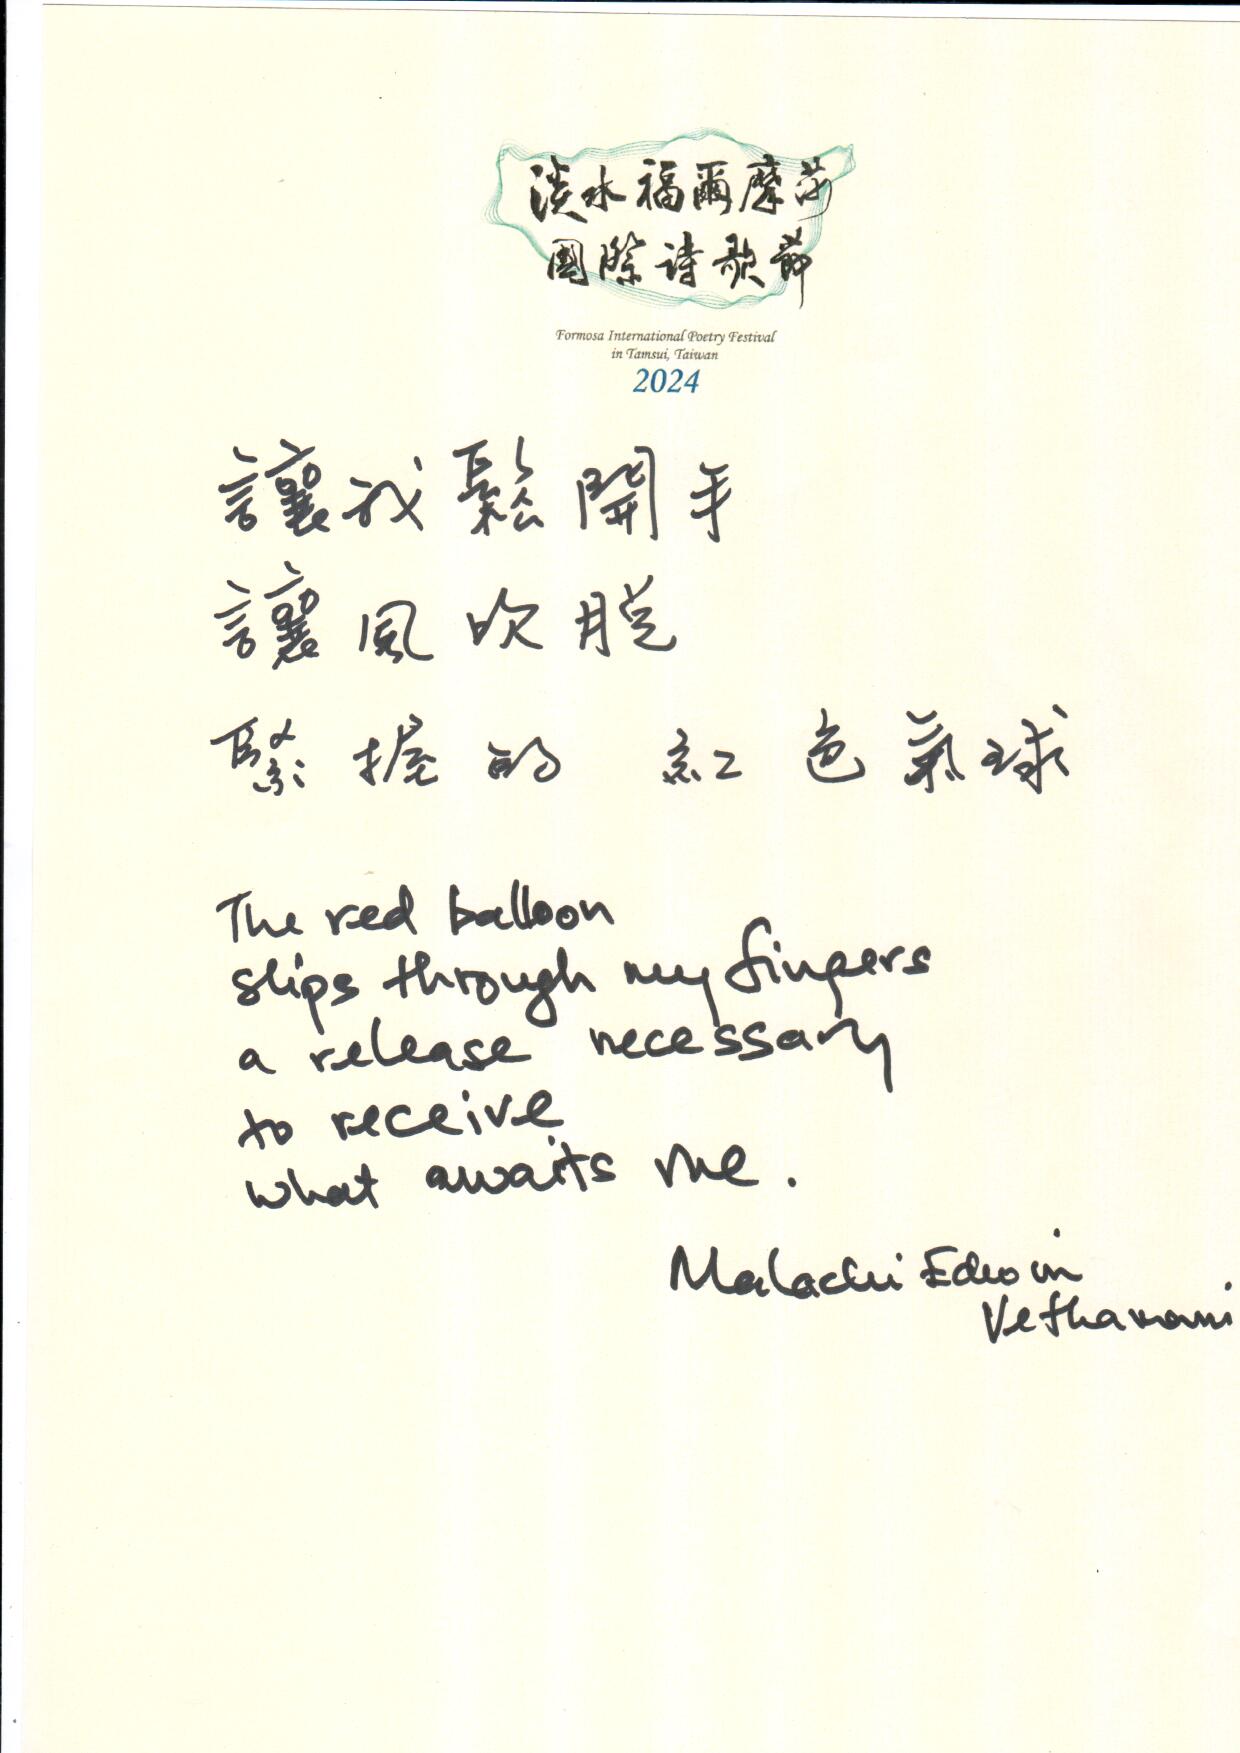 淡水福爾摩莎
國際詩歌節
Formosa International Poetry Festival
in Tamsui, Taiwan
2024
讓我鬆開手
讓風吹脫
緊握的 紅色氣球
The red balloon
slips through my fingers
a release necessary
to receive
what awaits me.
Malachi Edwin
Vethamani